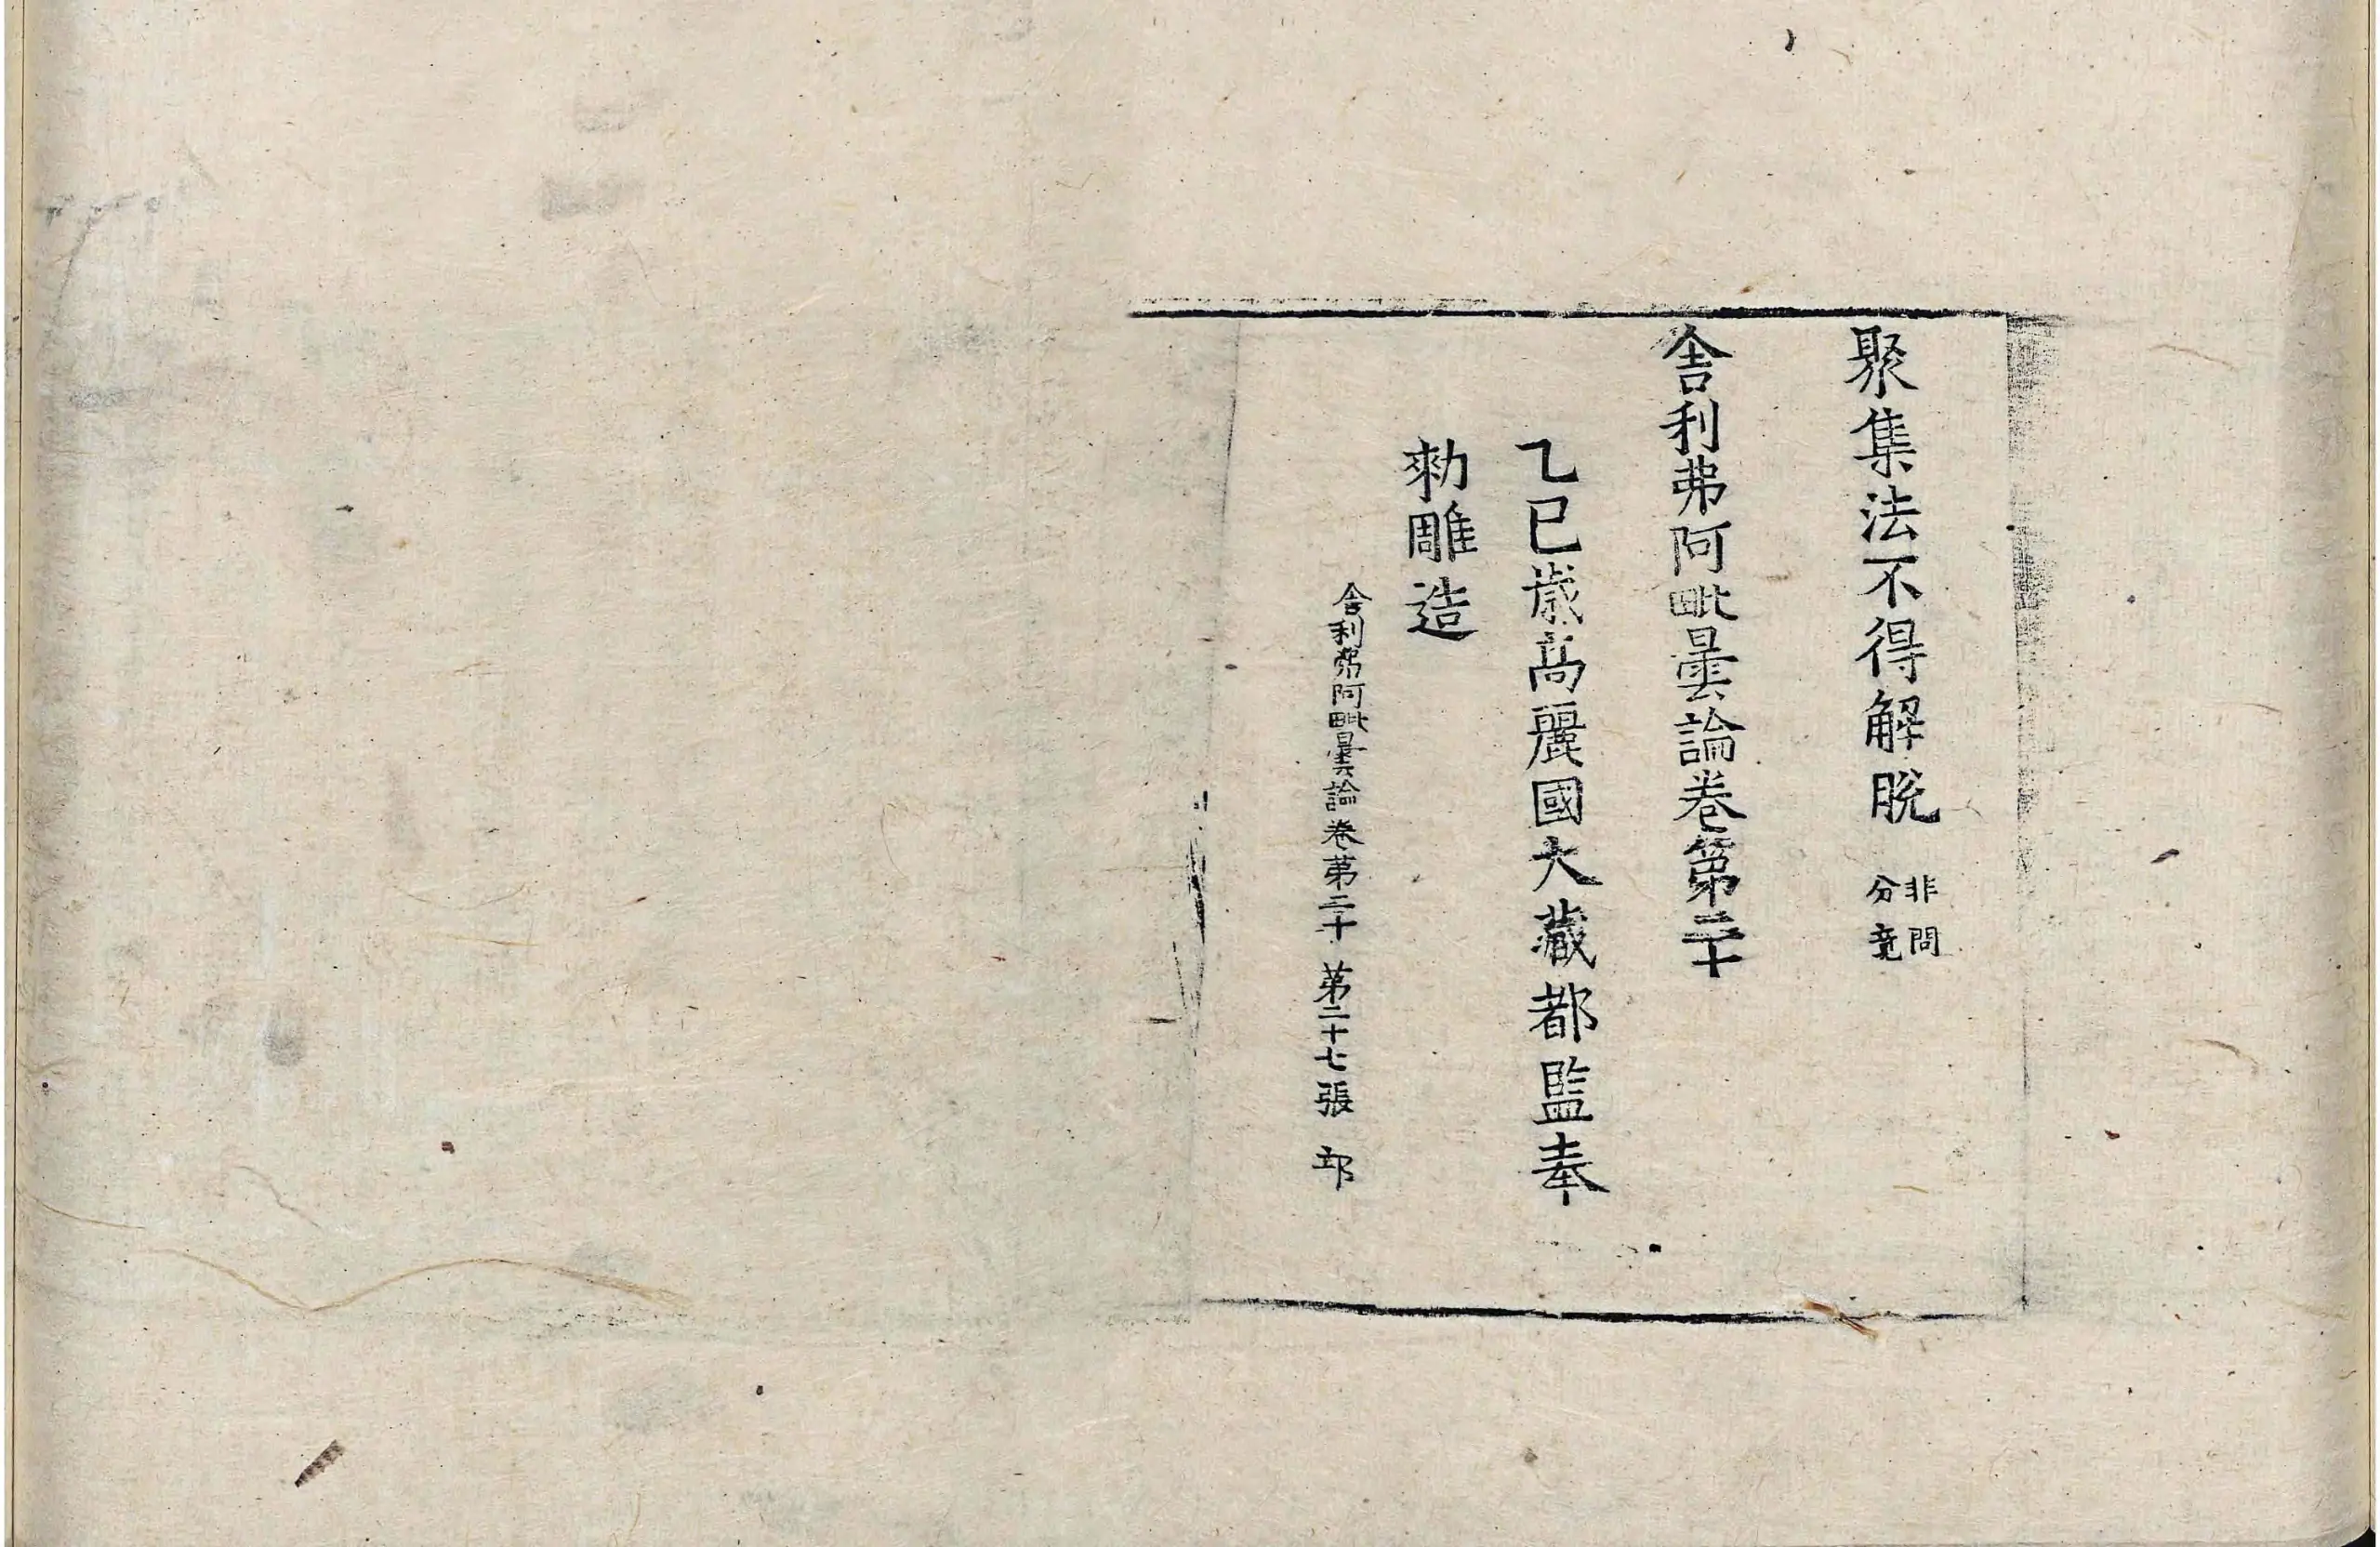 聚集法不得解脫 非問分竟
舍利弗阿毗曇論卷第二十
乙巳歲高麗國大藏都監奉
勅雕造
舍利弗阿毗曇論卷第二十 第二十七張